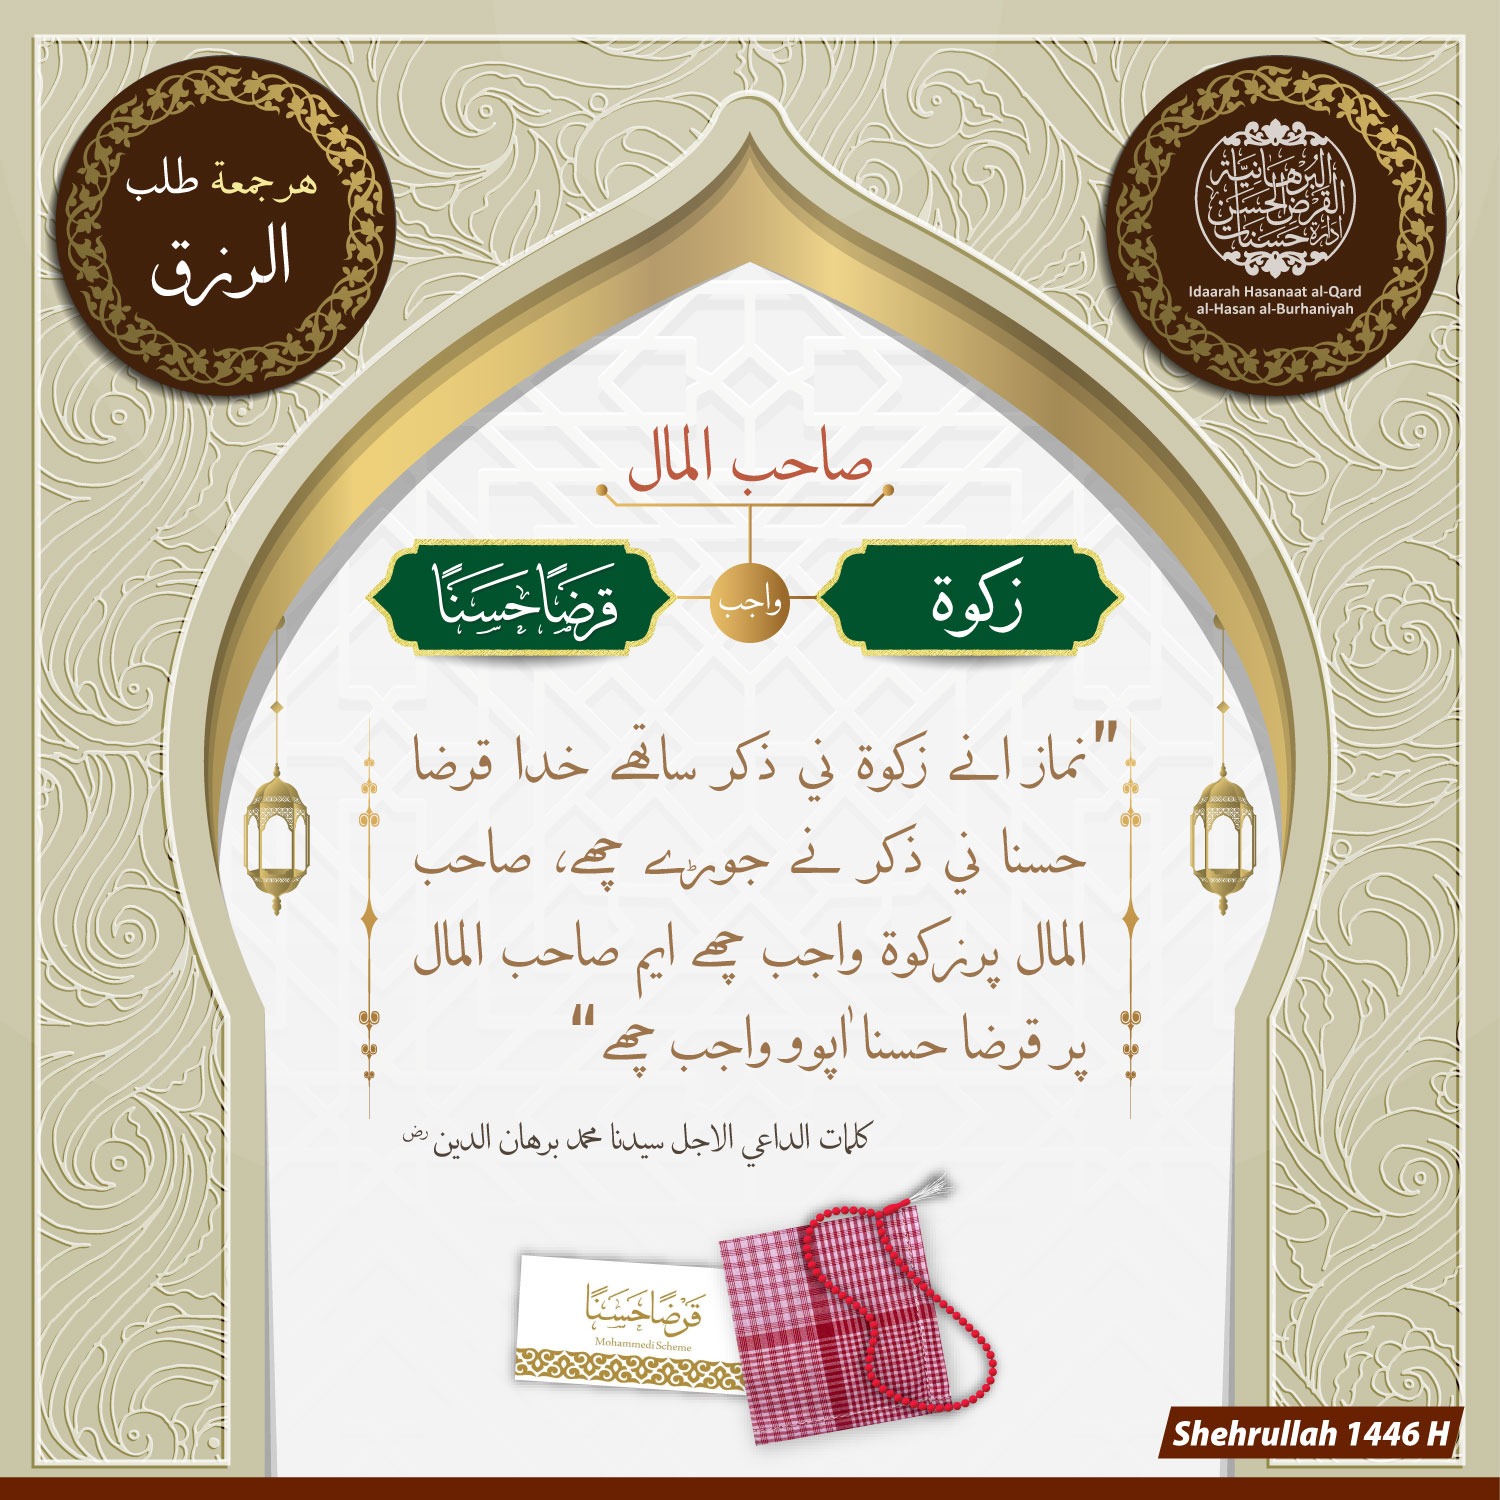 هر جمعة طلب
الرزق
البرهانية
القرض الحسن
إدارة حسنات
Idaarah Hasanaat al-Qard
al-Hasan al-Burhaniyah
صاحب المال
زكوة
واجب
قرضًا حَسَنًا
"نماز انے زكوة ني ذكر ساتھے خدا قرضا
حسنا ني ذكر نے جوڑے چھے، صاحب
المال پر زكوة واجب چھے ايم صاحب المال
پر قرضا حسنا اٰپوو واجب چھے"
كلمات الداعي الاجل سيدنا محمد برهان الدين رض
قَرْضًا حَسَنًا
Mohammedi Scheme
Shehrullah 1446 H